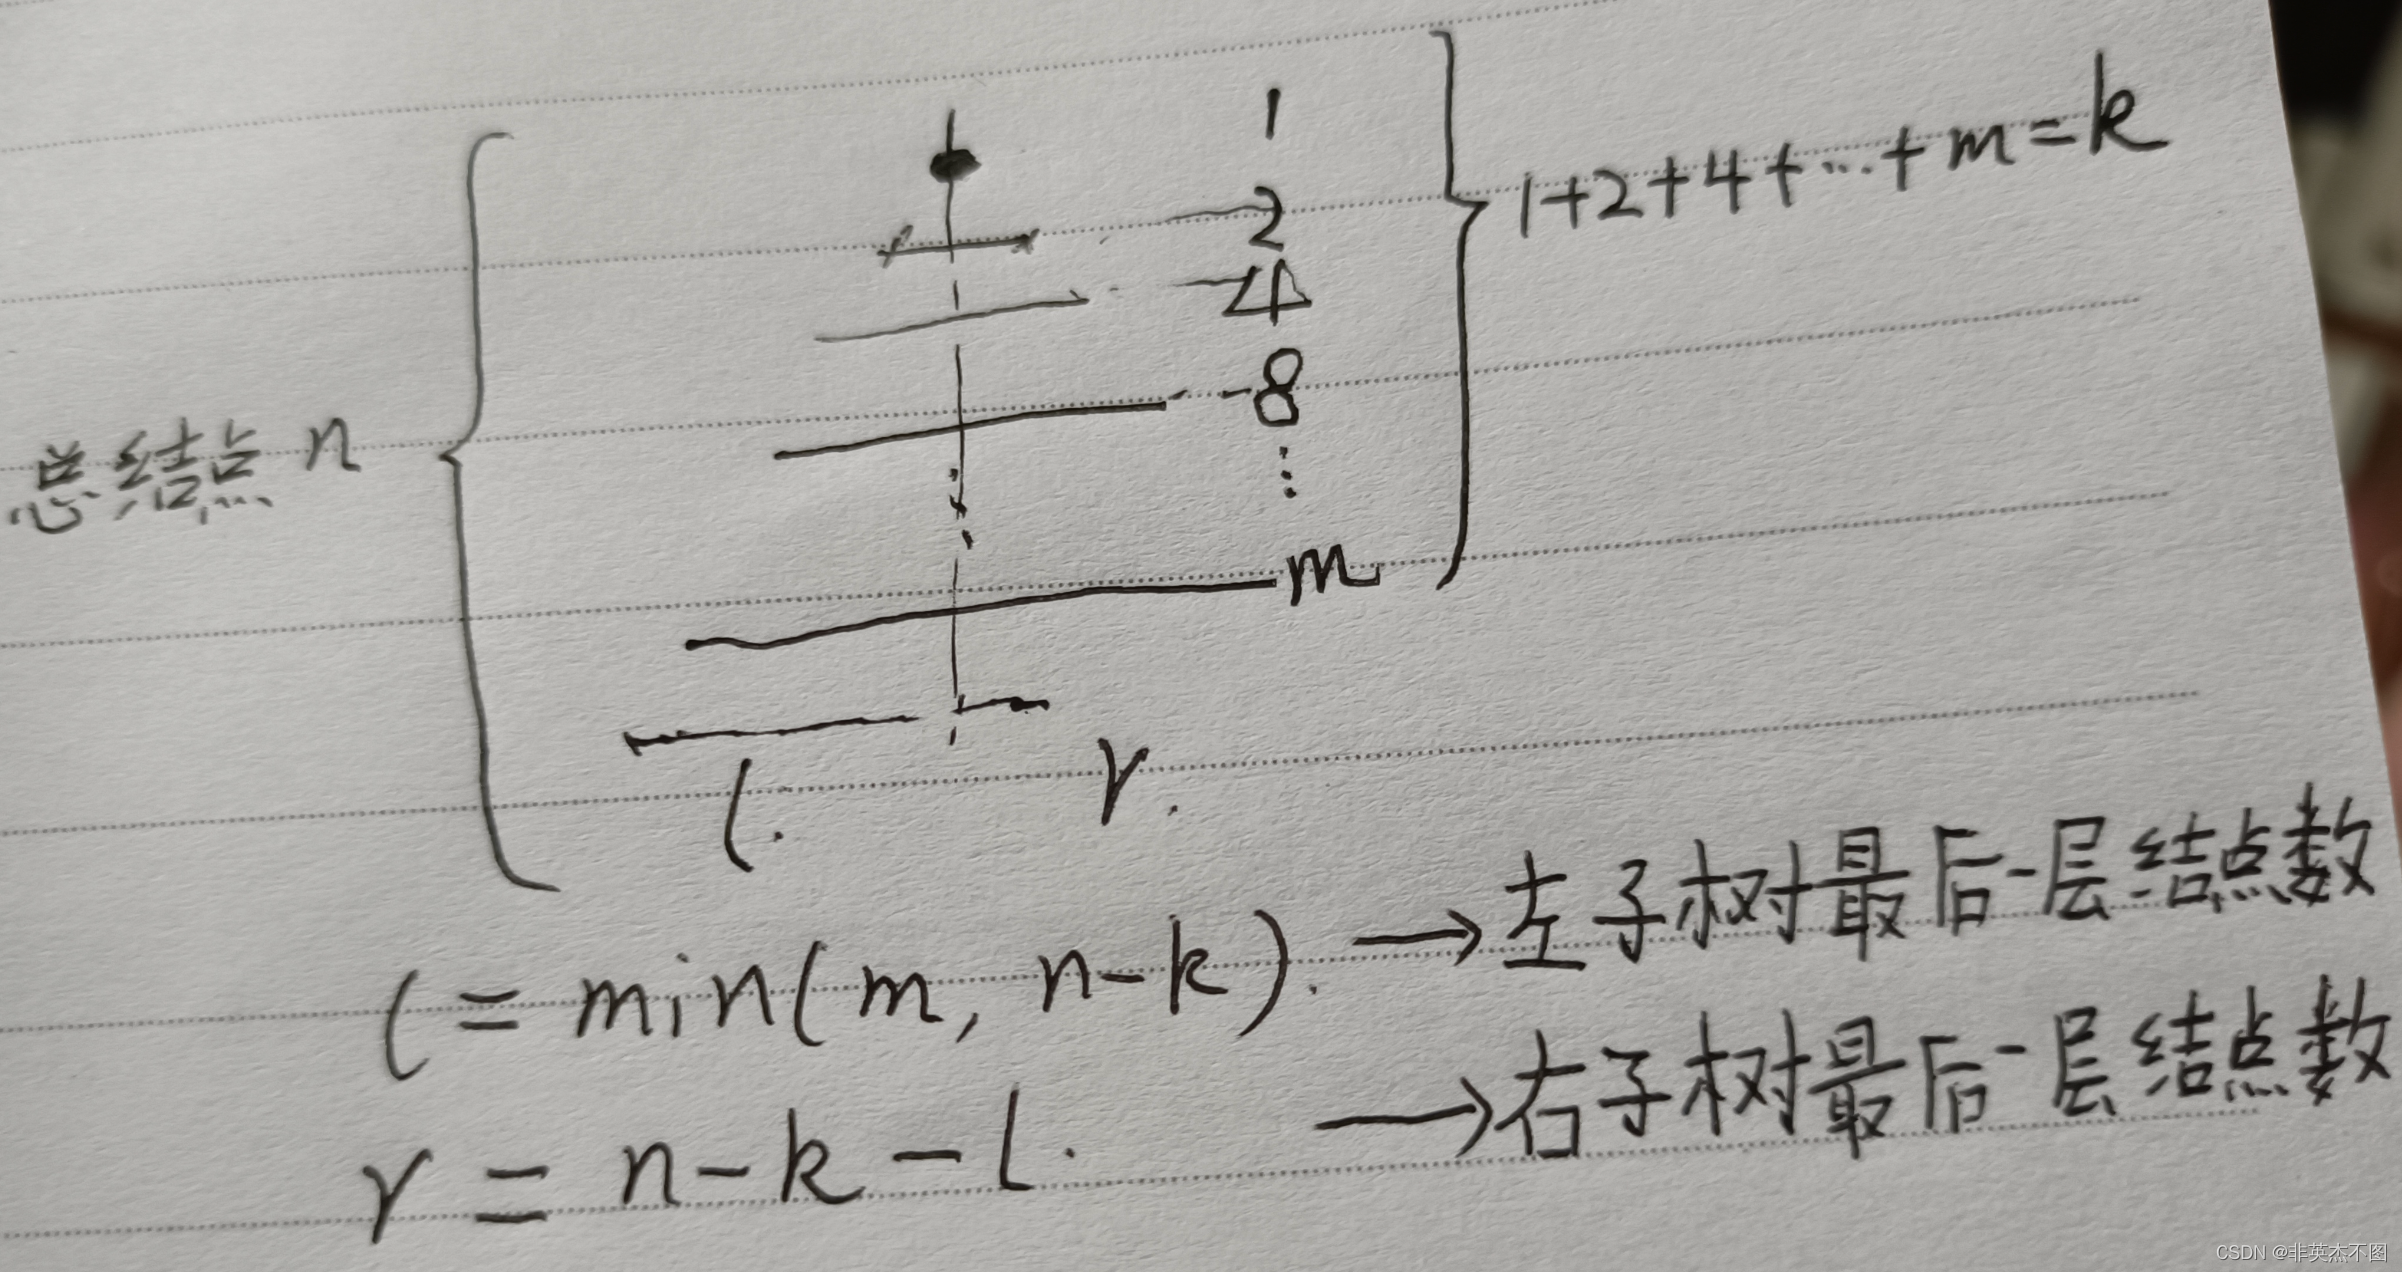 1
1+2+4+…+m=k
2
4
8
⋮
总结点 n
m
l.
r.
l = min(m, n-k). →左子树最后一层结点数
r = n-k-l. →右子树最后一层结点数
CSDN @非英杰不图